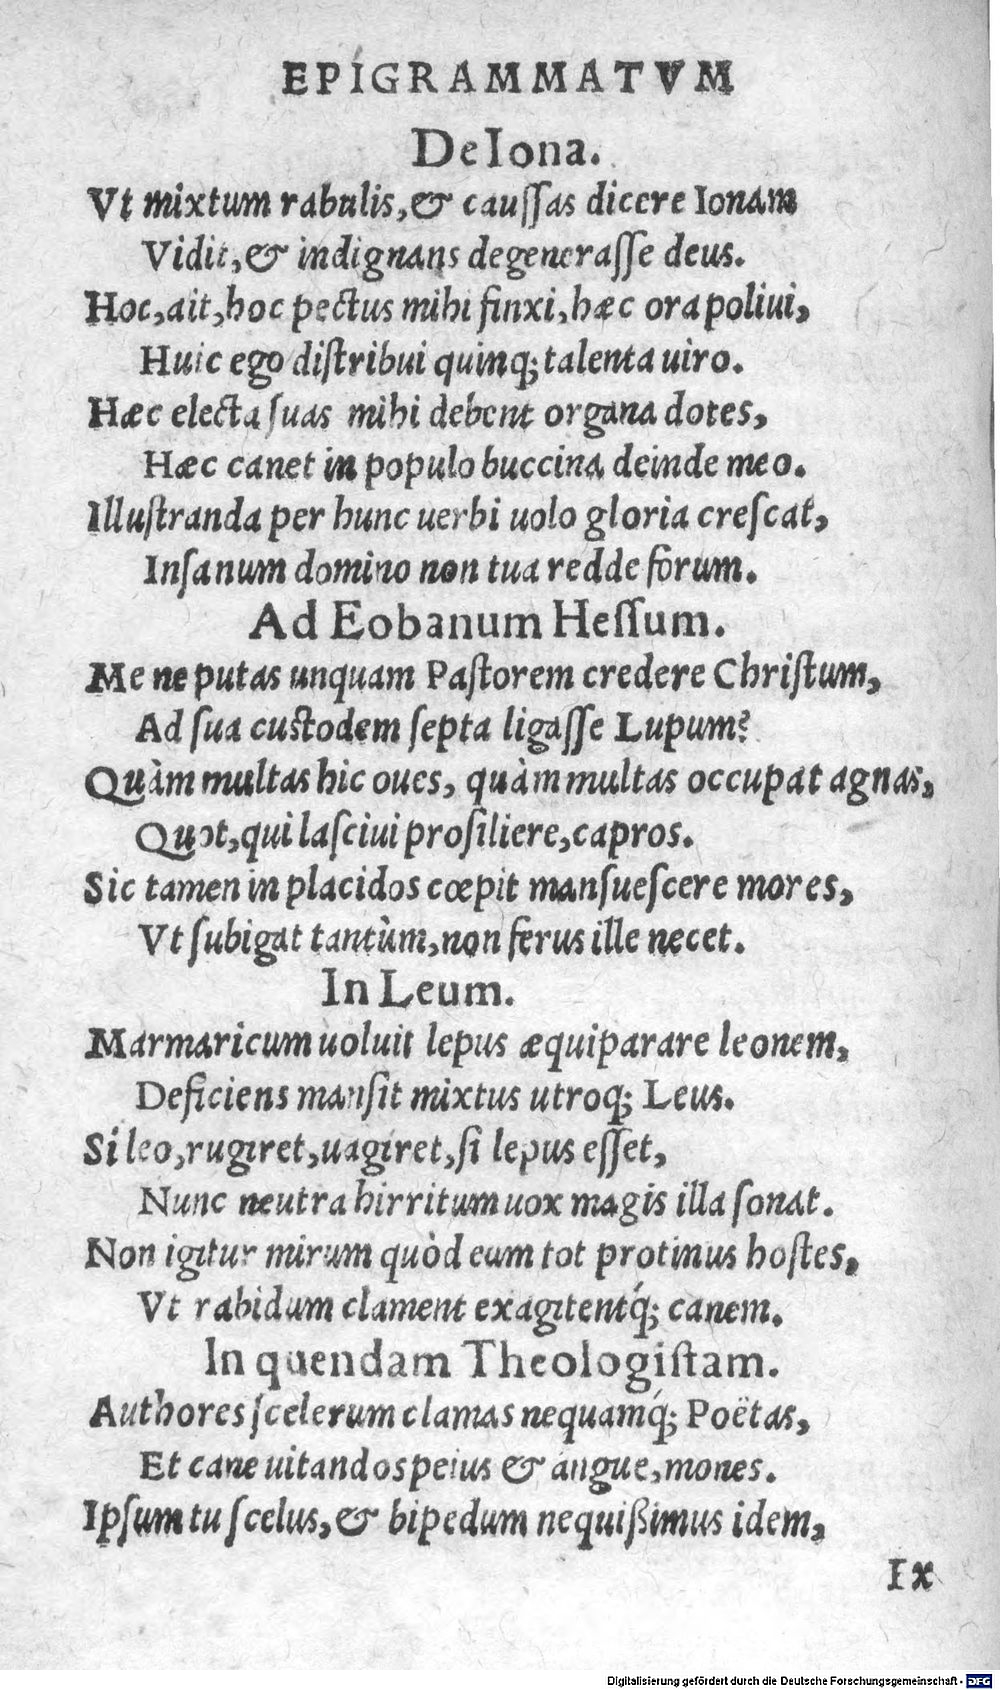 EPIGRAMMATVM
De Iona.
Vt mixtum rabulis, & cauſſas dicere Ionam
Vidit, & indignans degeneraſſe deus.
Hoc, ait, hoc pectus mihi finxi, hæc ora poliui,
Huic ego diſtribui quinq; talenta uiro.
Hæc electa ſuas mihi debent organa dotes,
Hæc canet in populo buccina deinde meo.
Illuſtranda per hunc uerbi uolo gloria creſcat,
Inſanum domino non tua redde forum.
Ad Eobanum Heſſum.
Me ne putas unquam Paſtorem credere Chriſtum,
Ad ſua cuſtodem ſepta ligaſſe Lupum?
Quàm multas hic oues, quàm multas occupat agnas,
Quot, qui laſciui proſiliere, capros.
Sic tamen in placidos cœpit manſueſcere mores,
Vt ſubigat tantùm, non ferus ille necet.
In Leum.
Marmaricum uoluit lepus æquiparare leonem,
Deficiens manſit mixtus utroq; Leus.
Si leo, rugiret, uagiret, ſi lepus eſſet,
Nunc neutra hirritum uox magis illa ſonat.
Non igitur mirum quòd eum tot protinus hoſtes,
Vt rabidum clament exagitentq́; canem.
In quendam Theologiſtam.
Authores ſcelerum clamas nequamq́; Poëtas,
Et cane uitandos peius & angue, mones.
Ipſum tu ſcelus, & bipedum nequißimus idem,
Ix
Digitalisierung gefördert durch die Deutsche Forschungsgemeinschaft - DFG